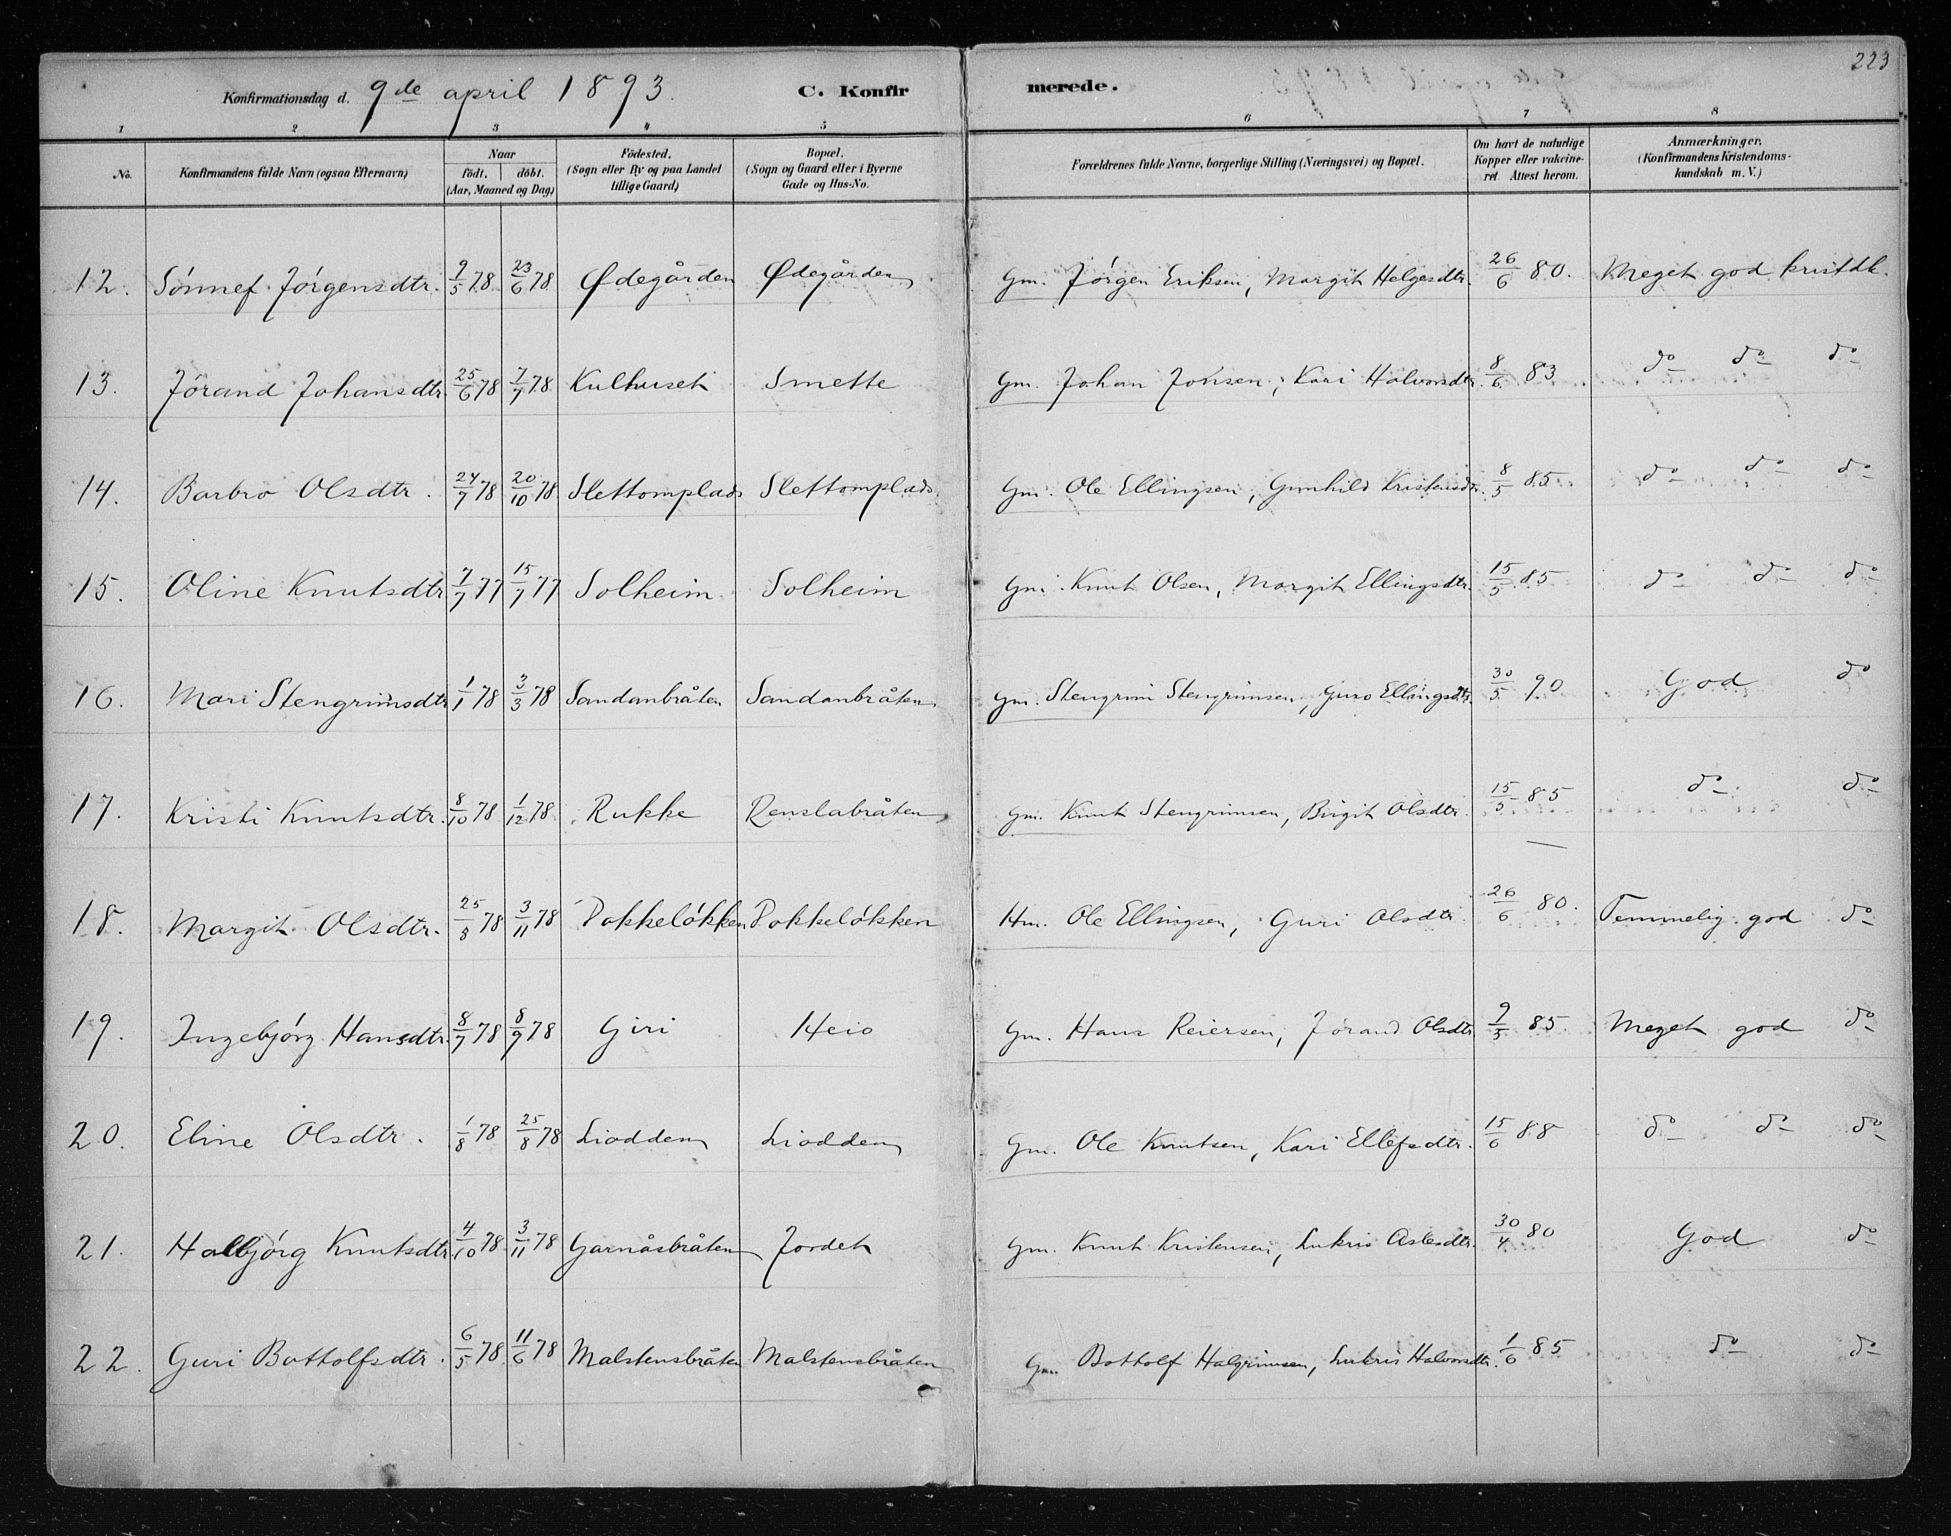 223
Konfirmationsdag d. 9de april 1893. C. Konfirmerede.
1 2 3 4 5 6 7 8
No. Konfirmandens fulde Navn (ogsaa Efternavn) Naar født. døbt. (Aar, Maaned og Dag) Fødested. (Sogn eller By og paa Landet tillige Gaard) Bopæl. (Sogn og Gaard eller i Byerne Gade og Hus-No. Forældrenes fulde Navne, borgerlige Stilling (Næringsvei) og Bopæl. Om havt de naturlige Kopper eller vakcineret. Attest herom. Anmærkninger. (Konfirmandens Kristendomskundskab m. V.)
12. Sønnef Jørgensdtr. 9/5 78 23/6 78 Ødegården Ødegården Gm. Jørgen Eriksen, Margit Helgesdtr. 26/6 80. Meget god kristdk.
13. Jørand Johansdtr. 25/6 78 7/7 78 Kulhuset Smette Gm. Johan Jonsen, Kari Halvorsdtr. 8/6 83 do do do
14. Barbro Olsdtr. 24/7 78 20/10 78 Slettomplads Slettomplads. Gm. Ole Ellingsen, Gunhild Kristensdtr. 8/5 85 do do do
15. Oline Knutsdtr. 7/7 77 15/7 77 Solheim Solheim Gm. Knut Olsen, Margit Ellingsdtr. 15/5 85 do do do
16. Mari Stengrimsdtr 1/1 78 3/3 78 Sandanbråten Sandanbråten Gm. Stengrim Stengrimsen, Guro Ellingsdtr. 30/5 90 God do
17. Kristi Knutsdtr. 8/10 78 1/12 78 Rukke Renslabråten Gm. Knut Stengrimsen, Birgit Olsdtr. 15/5 85 do do
18. Margit Olsdtr. 25/8 78 3/11 78 Dokkeløkken Dokkeløkken Hm. Ole Ellingsen, Guri Olsdtr. 26/6 80. Temmelig god do
19. Ingebjørg Hansdtr. 8/7 78 8/9 78 Giri Heio Gm. Hans Reiersen, Jørand Olsdtr. 9/5 85. Meget god do
20. Eline Olsdtr. 1/8 78 25/8 78 Liodden Liodden Gm. Ole Knutsen, Kari Ellefsdtr. 15/6 88 do do do
21. Halbjørg Knutsdtr 4/10 78 3/11 78 Garnåsbråten Jordet Gm. Knut Kristensen, Lukris Aslesdtr. 30/4 80 God do
22. Guri Bottolfsdtr. 6/5 78 11/6 78 Malstensbråten Malstensbråten Gm. Bottolf Halgrimsen, Lukris Halvorsdtr. 1/6 85 do do